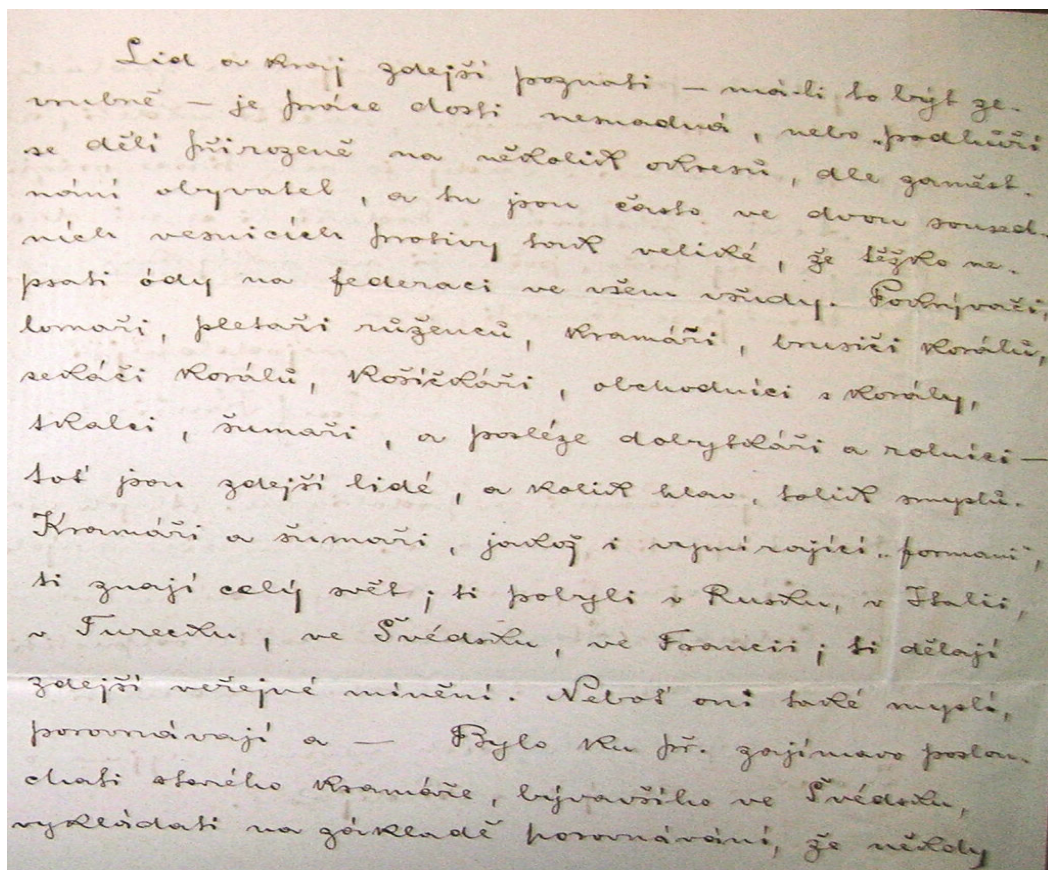 Lid a kraj zdejší poznati — má-li to být ze-
vrubně — je práce dosti nesnadná, nebo „podhůří
se dělí přirozeně na několik okresů, dle zaměst-
nání obyvatel, a tu jsou často ve dvou soused-
ních vesnicích protivy tak veliké, že těžko ne-
psati ódy na federaci ve všem všudy. Pokrývači,
lomaři, pletaři růženců, kramáři, brusiči korálů,
sekáči korálů, košíčkáři, obchodníci s korály,
tkalci, šumaři, a posléze dobytkáři a rolníci —
toť jsou zdejší lidé, a kolik hlav, tolik smyslů.
Kramáři a šumaři, jakož i vymírající „formani“,
ti znají celý svět; ti pobyli v Rusku, v Italii,
v Turecku, ve Švédsku, ve Francii; ti dělají
zdejší veřejné mínění. Neboť oni také myslí,
porovnávají a — Bylo ku př. zajímavo poslou-
chati starého kramáře, bývavšího ve Švédsku,
vykládati na základě porovnávání, že někdy